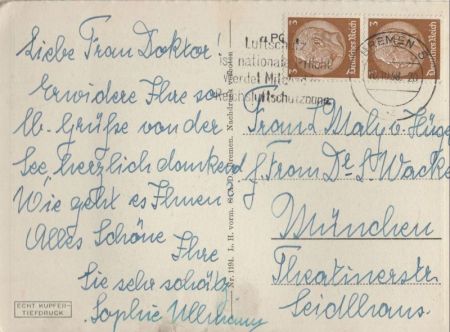 Liebe Frau Doktor!
Erwidere Ihre so
lb. Grüße von der
See herzlich dankend
Wie geht es Ihnen
Alles Schöne
Ihre
Sie sehr schätz.
Sophie
ECHT KUPFER-
TIEFDRUCK
Nr. 1194. L. H. vorm. Bremen. Nachdruck verboten
Luftschutz
ist nationale Pflicht
Werdet Mit
Reichsluftschutzbund
BREMEN
3 3
Deutsches Reich
Deutsches Reich
Frau L. Maly v.
f. Frau Dr. L. Wacke
München
Theatinerstr.
Seidlhaus.